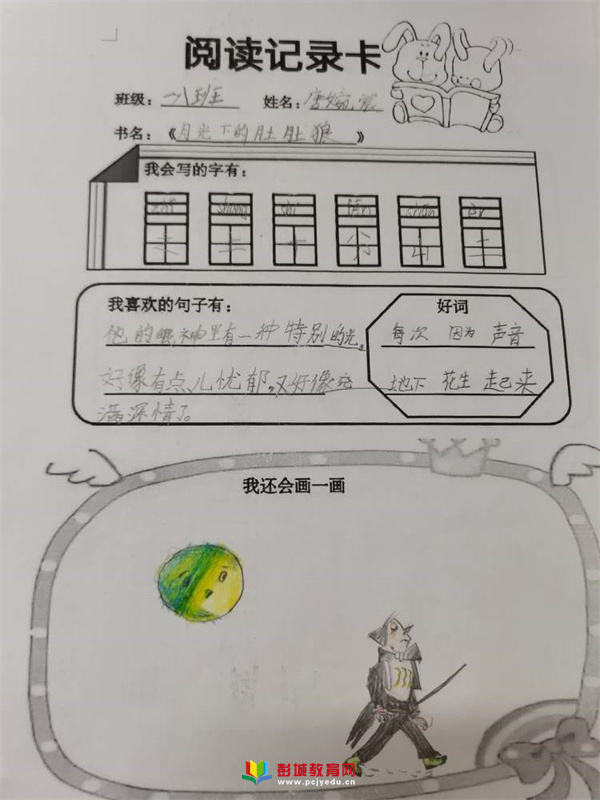 阅读记录卡
班级：一八班 姓名：唐婉
书名：《月光下的肚肚狼》
我会写的字有：
shàng shí fēn chū
上 十 分 出
我喜欢的句子有： 好词
他的眼神里有一种特别的光, 每次 因为 声音
好像有点儿忧郁,又好像充 地下 花生 起来
满深情。
我还会画一画
彭城教育网
www.pcjyedu.cn